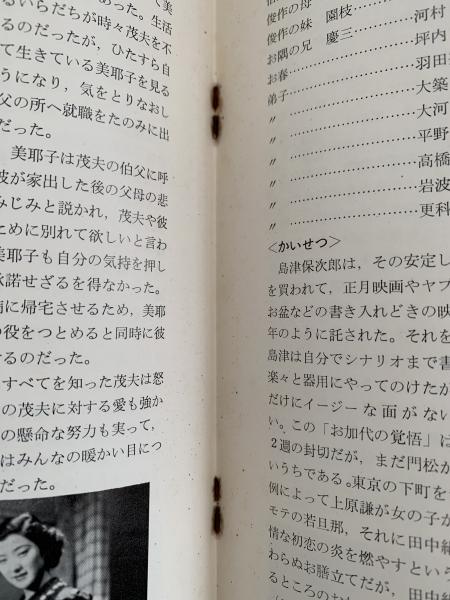 た。生活
るいらだちが時々茂夫を不
るのだったが、ひたすら自
て生きている美耶子を見る
うになり、気をとりなおし
父の所へ就職をたのみに出
だった。
美耶子は茂夫の伯父に呼
彼が家出した後の父母の悲
みじみと説かれ，茂夫や彼
ために別れて欲しいと言わ
美耶子も自分の気持を押し
承諾せざるを得なかった。
に帰宅させるため，美耶
の役をつとめると同時に彼
るのだった。
すべてを知った茂夫は怒
の茂夫に対する愛も強か
の懸命な努力も実って，
はみんなの暖かい目につ
だった。
俊作の母
俊作の妹　園枝……………河村
お隅の兄　慶三……………坪内
お春……………羽田
弟子……………大築
〃……………大河
〃……………平野
〃……………高橋
〃……………岩波
〃……………更科
＜かいせつ＞
島津保次郎は，その安定し
を買われて，正月映画やヤブ
お盆などの書き入れどきの映
年のように託された。それを
島津は自分でシナリオまで書
楽々と器用にやってのけたが
だけにイージーな面がない
い。この「お加代の覚悟」は
2週の封切だが，まだ門松が
いうちである。東京の下町を
例によって上原謙が女の子が
モテの若旦那，それに田中絹
情な初恋の炎を燃やすという
わらぬお膳立てだが，田中絹
るところのおた